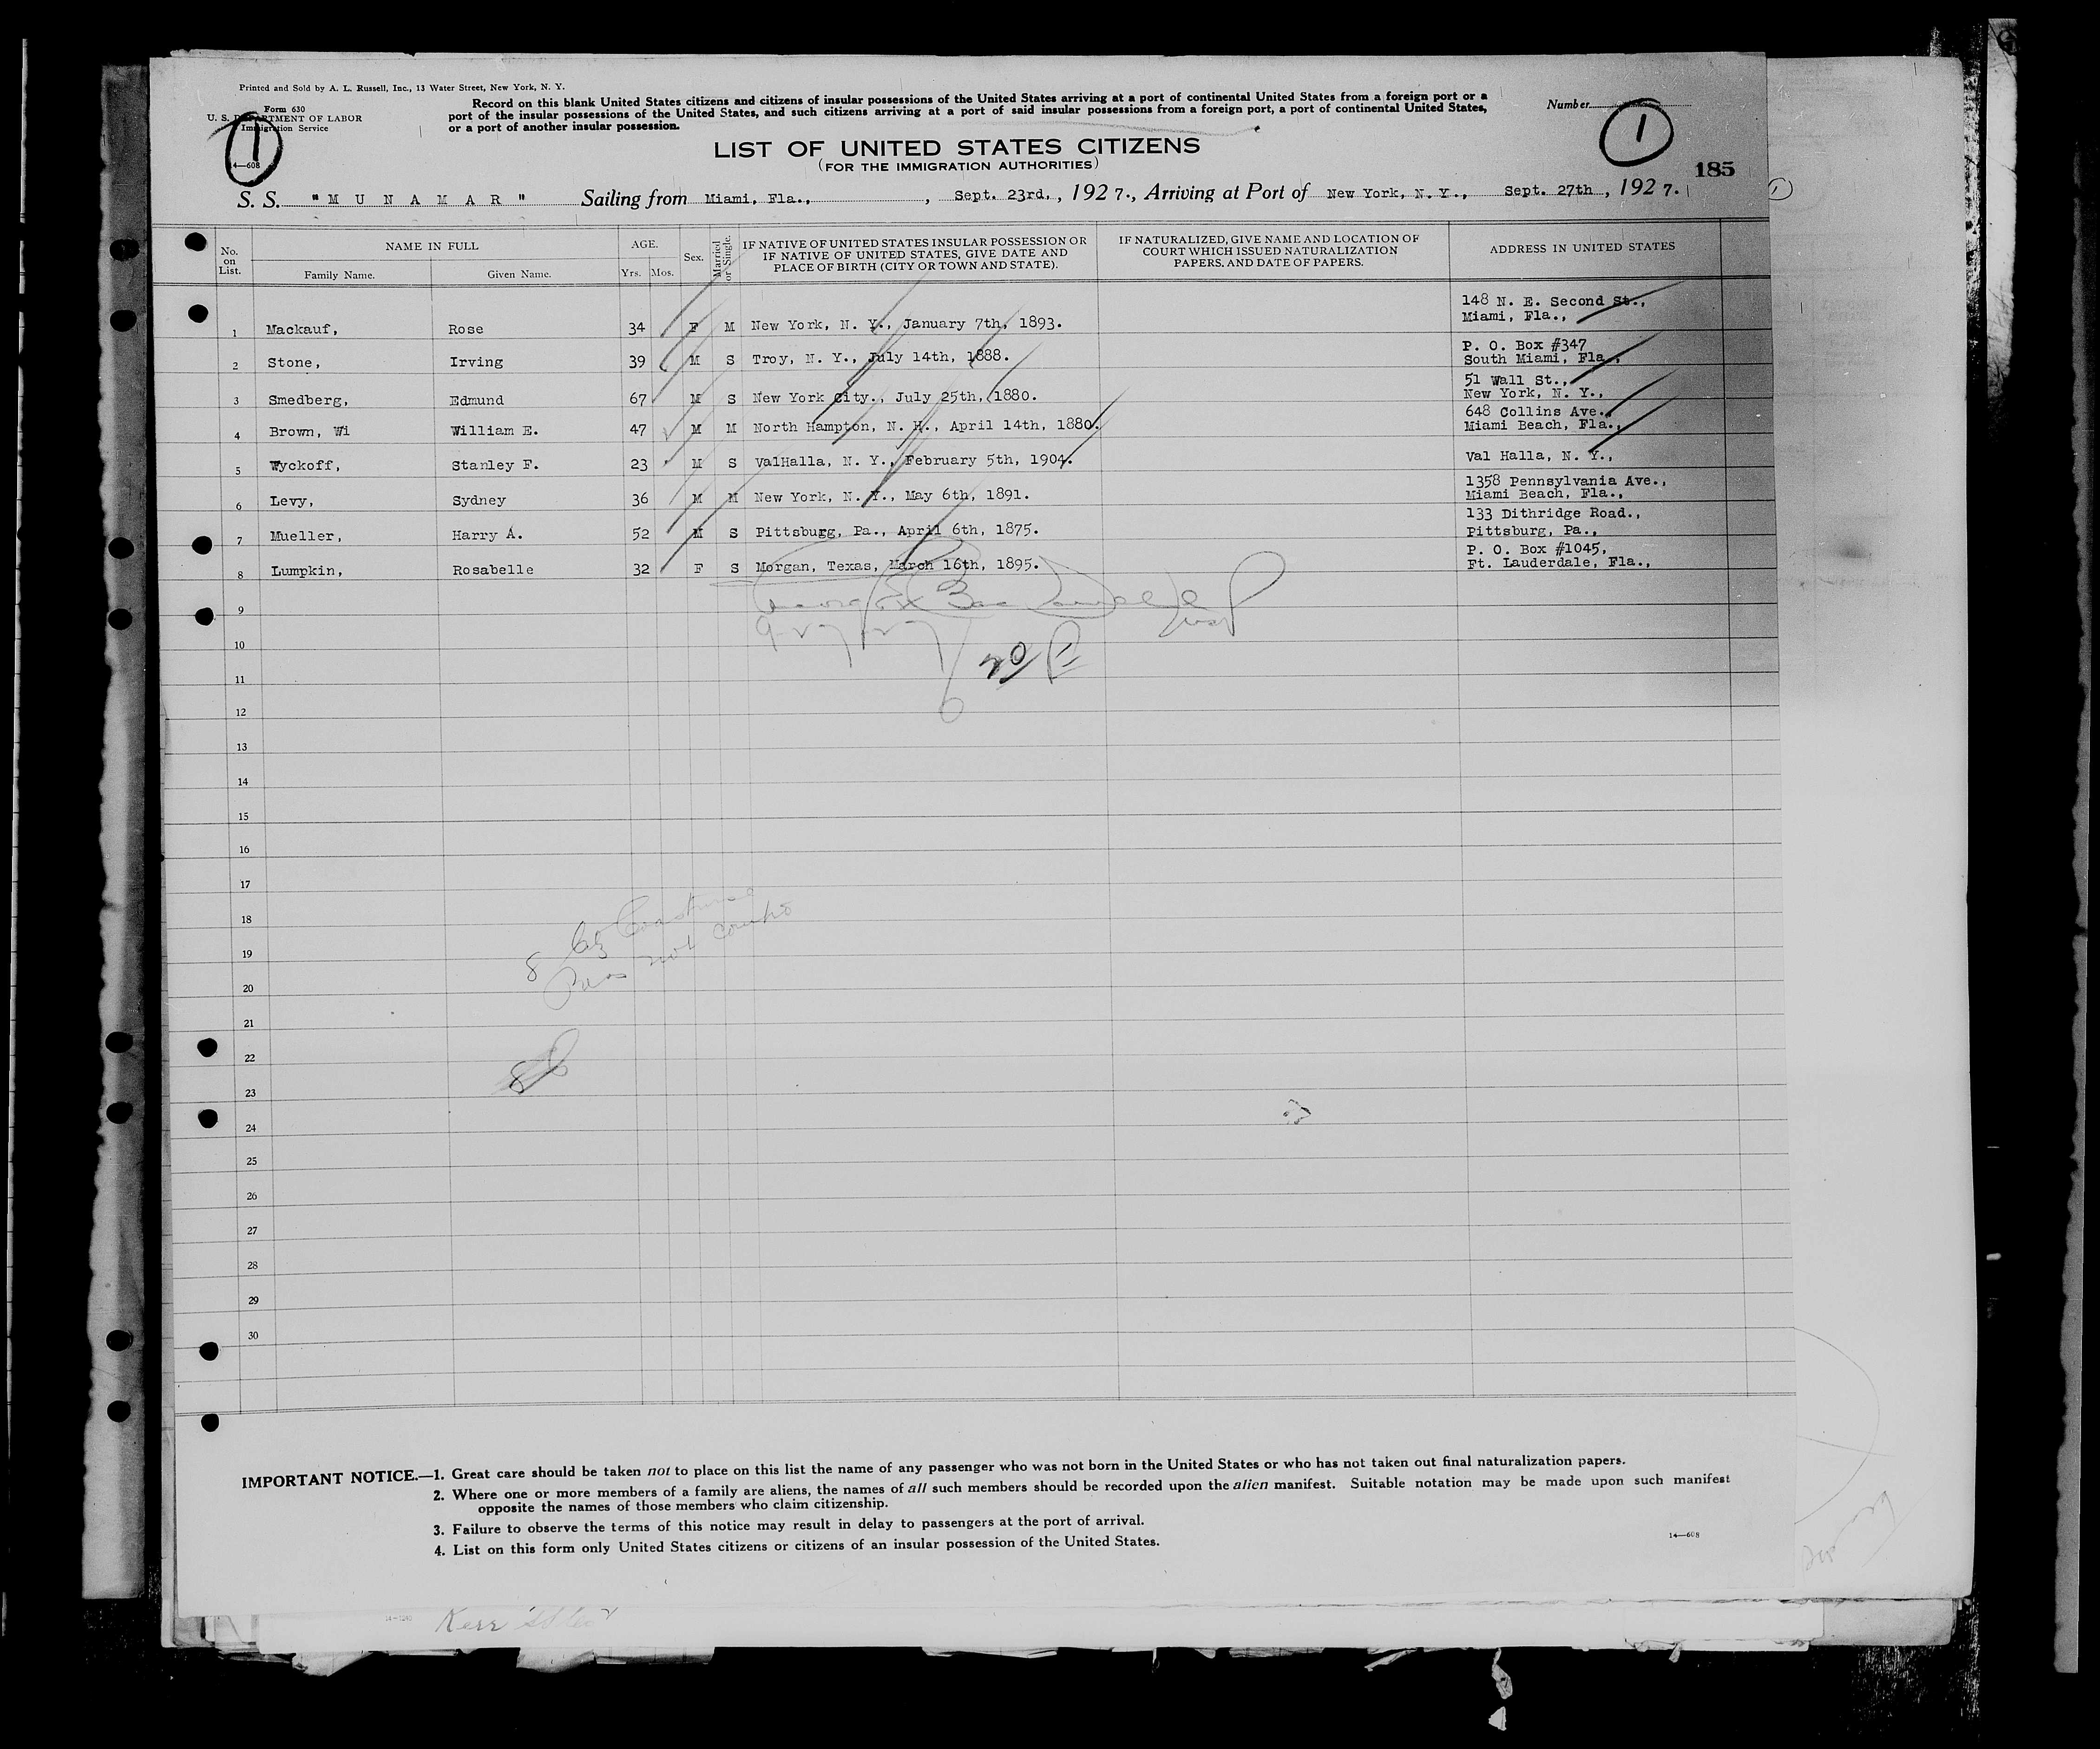 Printed and Sold by A. L. Russell, Inc., 13 Water Street, New York, N. Y.
Form 630
U. S. DEPARTMENT OF LABOR
Immigration Service
14—608
1
Record on this blank United States citizens and citizens of insular possessions of the United States arriving at a port of continental United States from a foreign port or a
port of the insular possessions of the United States, and such citizens arriving at a port of said insular possessions from a foreign port, a port of continental United States,
or a port of another insular possession.
Number
1
185
LIST OF UNITED STATES CITIZENS
(FOR THE IMMIGRATION AUTHORITIES)
S. S. "M U N A M A R" Sailing from Miami, Fla., , Sept. 23rd, , 1927., Arriving at Port of New York, N. Y., Sept. 27th , 1927.
No. on List. NAME IN FULL Family Name. Given Name. AGE. Yrs. Mos. Sex. Married or Single. IF NATIVE OF UNITED STATES INSULAR POSSESSION OR IF NATIVE OF UNITED STATES, GIVE DATE AND PLACE OF BIRTH (CITY OR TOWN AND STATE). IF NATURALIZED, GIVE NAME AND LOCATION OF COURT WHICH ISSUED NATURALIZATION PAPERS, AND DATE OF PAPERS. ADDRESS IN UNITED STATES
1 Mackauf, Rose 34 F M New York, N. Y., January 7th, 1893. 148 N. E. Second St., Miami, Fla.,
2 Stone, Irving 39 M S Troy, N. Y., July 14th, 1888. P. O. Box #347 South Miami, Fla.,
3 Smedberg, Edmund 67 M S New York City., July 25th, 1880. 51 Wall St., New York, N. Y.,
4 Brown, Wi William E. 47 M M North Hampton, N. H., April 14th, 1880. 648 Collins Ave., Miami Beach, Fla.,
5 Wyckoff, Stanley F. 23 M S ValHalla, N. Y., February 5th, 1904. Val Halla, N. Y.,
6 Levy, Sydney 36 M M New York, N. Y., May 6th, 1891. 1358 Pennsylvania Ave., Miami Beach, Fla.,
7 Mueller, Harry A. 52 M S Pittsburg, Pa., April 6th, 1875. 133 Dithridge Road., Pittsburg, Pa.,
8 Lumpkin, Rosabelle 32 F S Morgan, Texas, March 16th, 1895. P. O. Box #1045, Ft. Lauderdale, Fla.,
9
10
11
12
13
14
15
16
17
18
19
20
21
22
23
24
25
26
27
28
29
30
8 Cit Coastwise
Pass not
IMPORTANT NOTICE.—1. Great care should be taken not to place on this list the name of any passenger who was not born in the United States or who has not taken out final naturalization papers.
2. Where one or more members of a family are aliens, the names of all such members should be recorded upon the alien manifest. Suitable notation may be made upon such manifest
opposite the names of those members who claim citizenship.
3. Failure to observe the terms of this notice may result in delay to passengers at the port of arrival.
4. List on this form only United States citizens or citizens of an insular possession of the United States.
14—608
Kerr